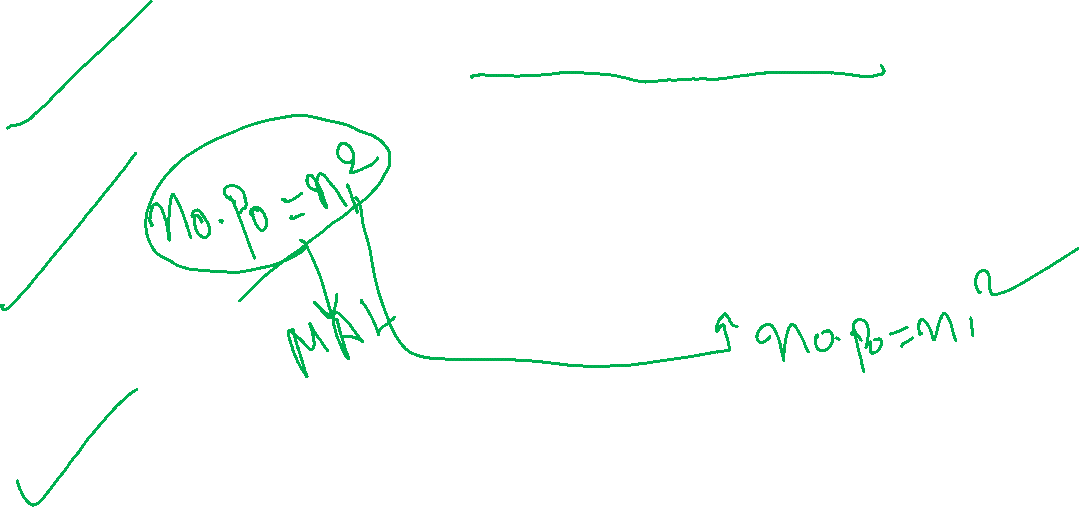 n₀.p₀=nᵢ²
MAL
n₀.p₀=nᵢ²